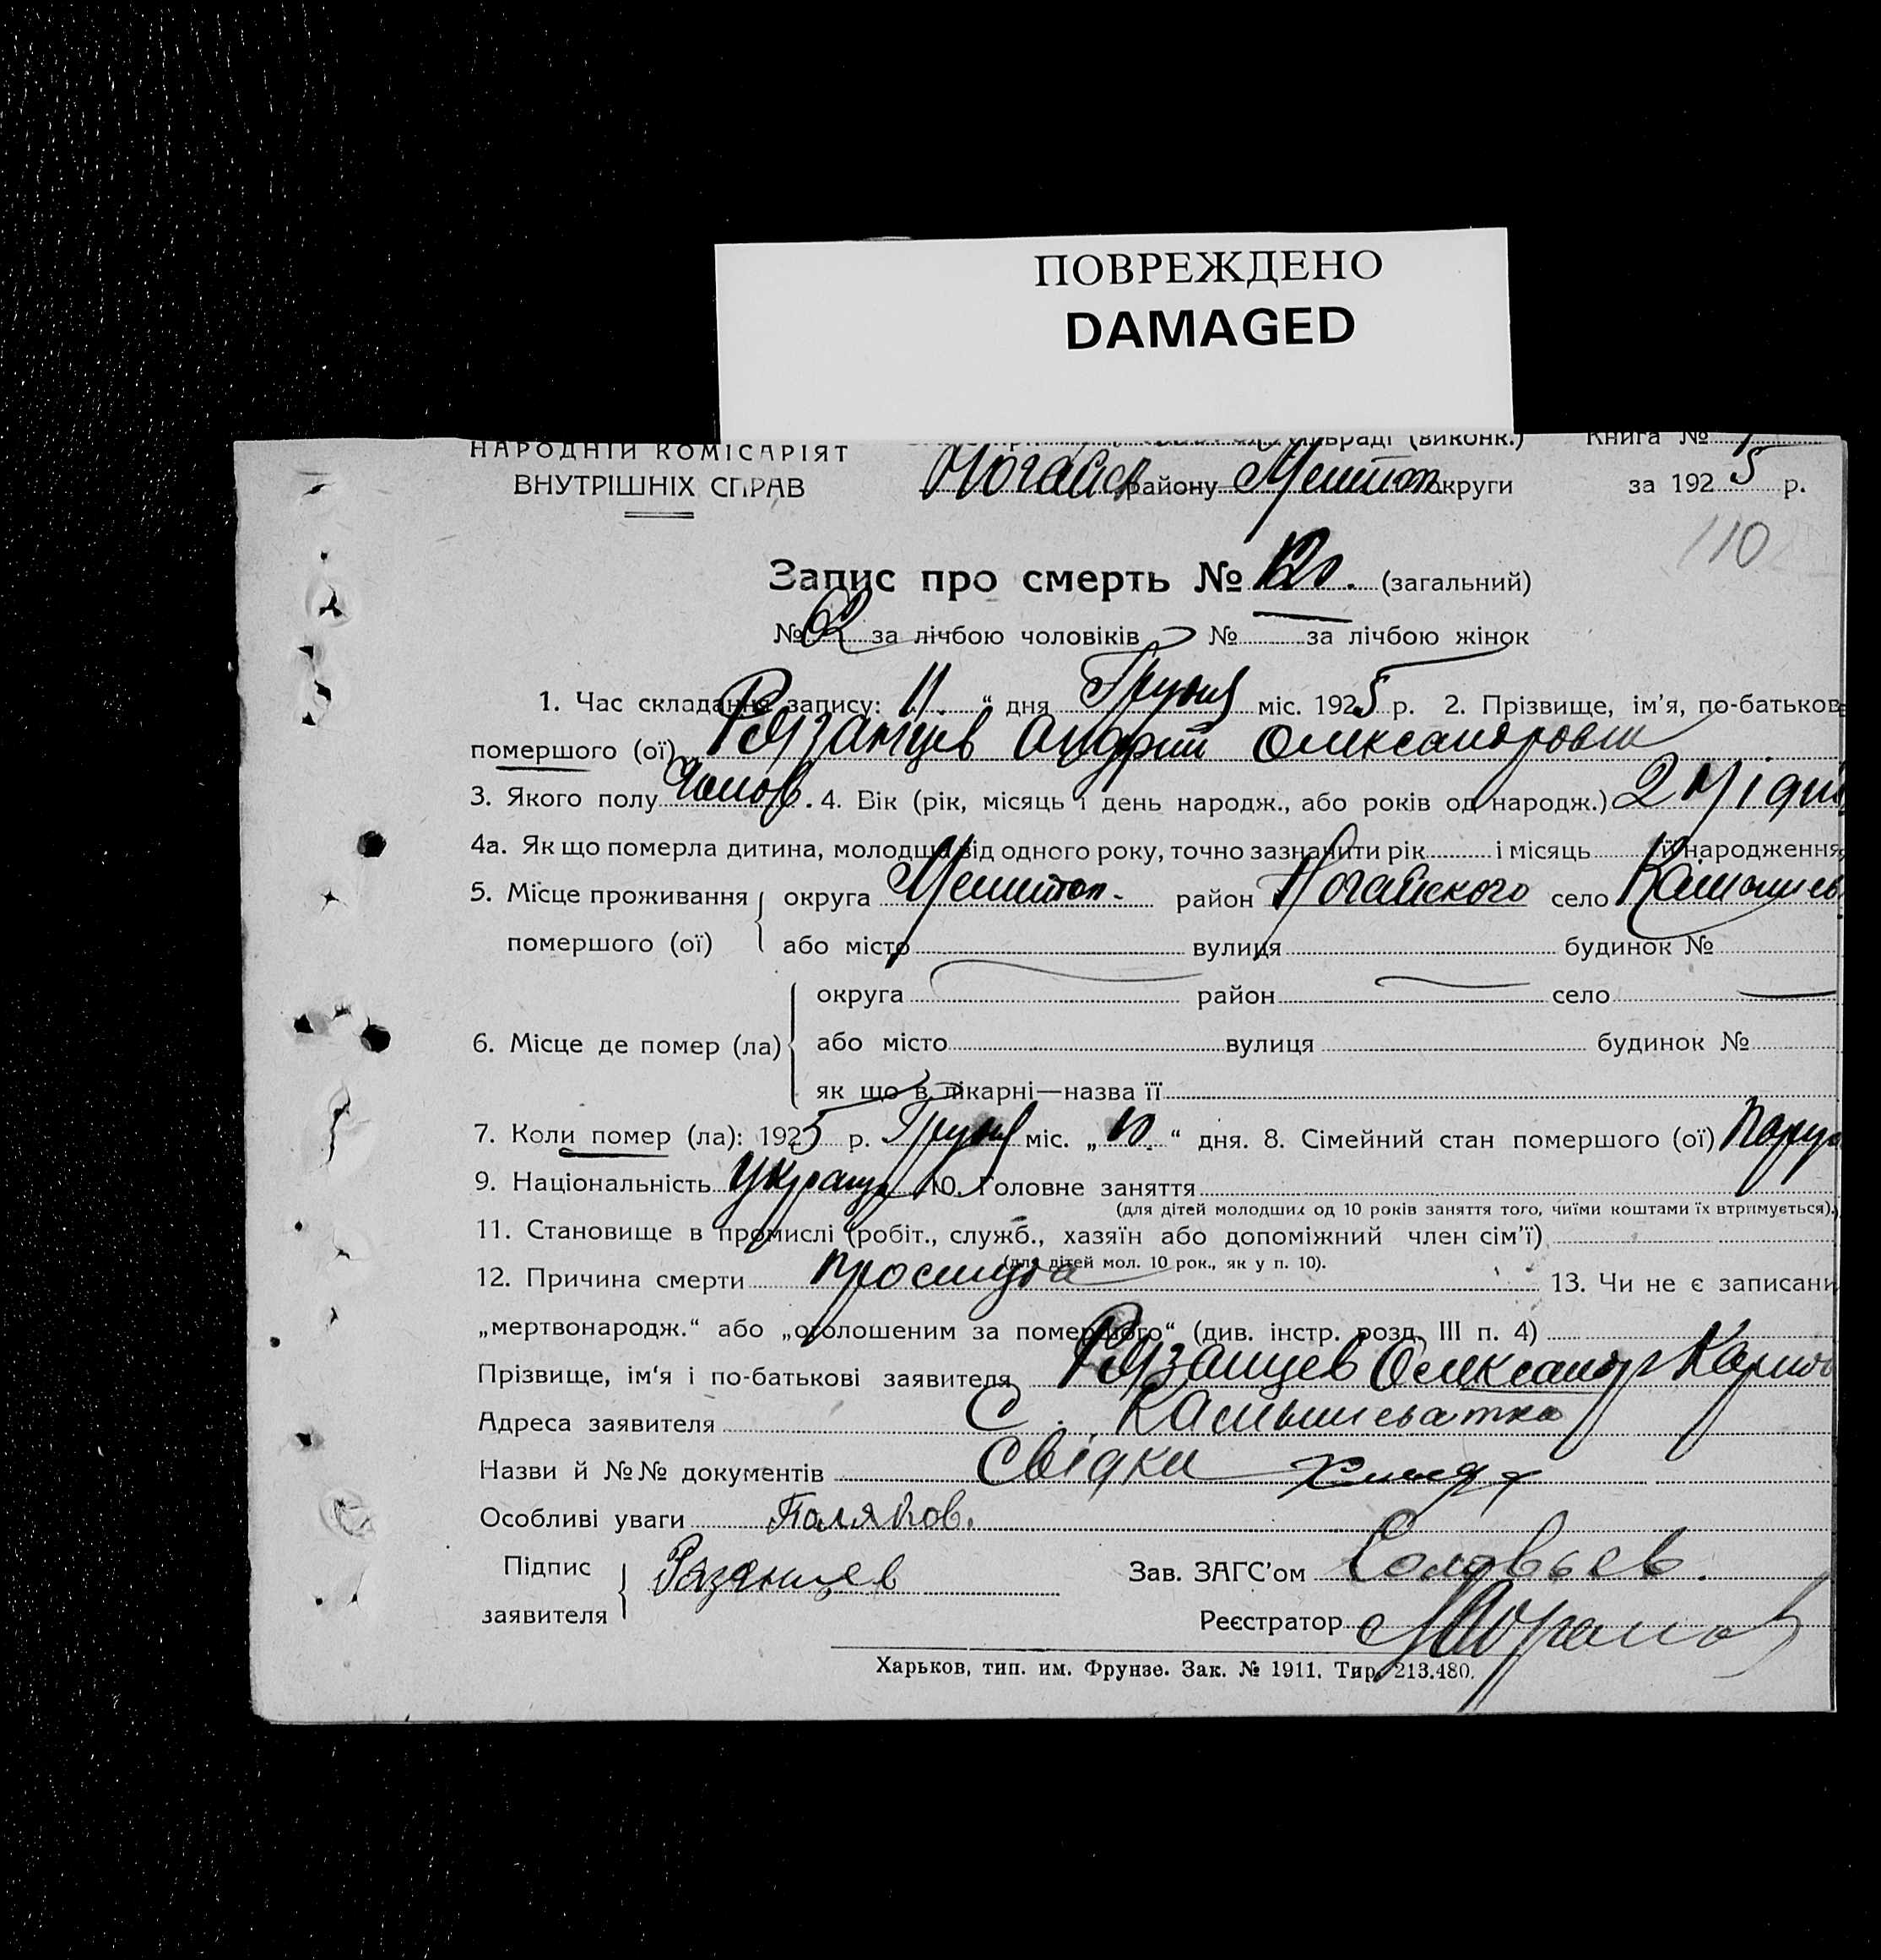 ПОВРЕЖДЕНО
DAMAGED
НАРОДНІЙ КОМІСАРІЯТ (виконк.) Книга №
ВНУТРІШНІХ СПРАВ Ногайск району Мелітоп. округи за 1925 р.
110
Запис про смерть № (загальний)
№ 62 за лічбою чоловіків № за лічбою жінок
1. Час складання запису: 11 “ дня Грудня міс. 1925 р. 2. Прізвище, ім'я, по-батьков
помершого (ої) Рязанцев Андрій Олександрович
3. Якого полу Чолов. 4. Вік (рік, місяць і день народж., або років од народж.) 2
4а. Як що померла дитина, молодша від одного року, точно зазначити рік і місяць її народження,
5. Місце проживання округа Мелитоп. район Ногайского село
помершого (ої) або місто вулиця будинок №
округа район село
6. Місце де помер (ла) або місто вулиця будинок №
як що в лікарні—назва її
7. Коли помер (ла): 1925 р. Грудня міс. „ “ дня. 8. Сімейний стан помершого (ої)
9. Національність 10. Головне заняття
(для дітей молодших од 10 років заняття того, чиїми коштами їх втримується).
11. Становище в промислі (робіт., служб., хазяїн або допоміжний член сім'ї)
(для дітей мол. 10 рок., як у п. 10).
12. Причина смерти простуда 13. Чи не є записани
„мертвонародж.“ або „оголошеним за померлого“ (див. інстр. розд. III п. 4)
Прізвище, ім'я і по-батькові заявителя Рязанцев Олександр
Адреса заявителя С. Камышеватка
Назви й №№ документів Свідки
Особливі уваги Поляков.
Підпис Рязанцев Зав. ЗАГС'ом Соловьев.
заявителя Реєстратор
Харьков, тип. им. Фрунзе. Зак. № 1911. Тир. 213.480.